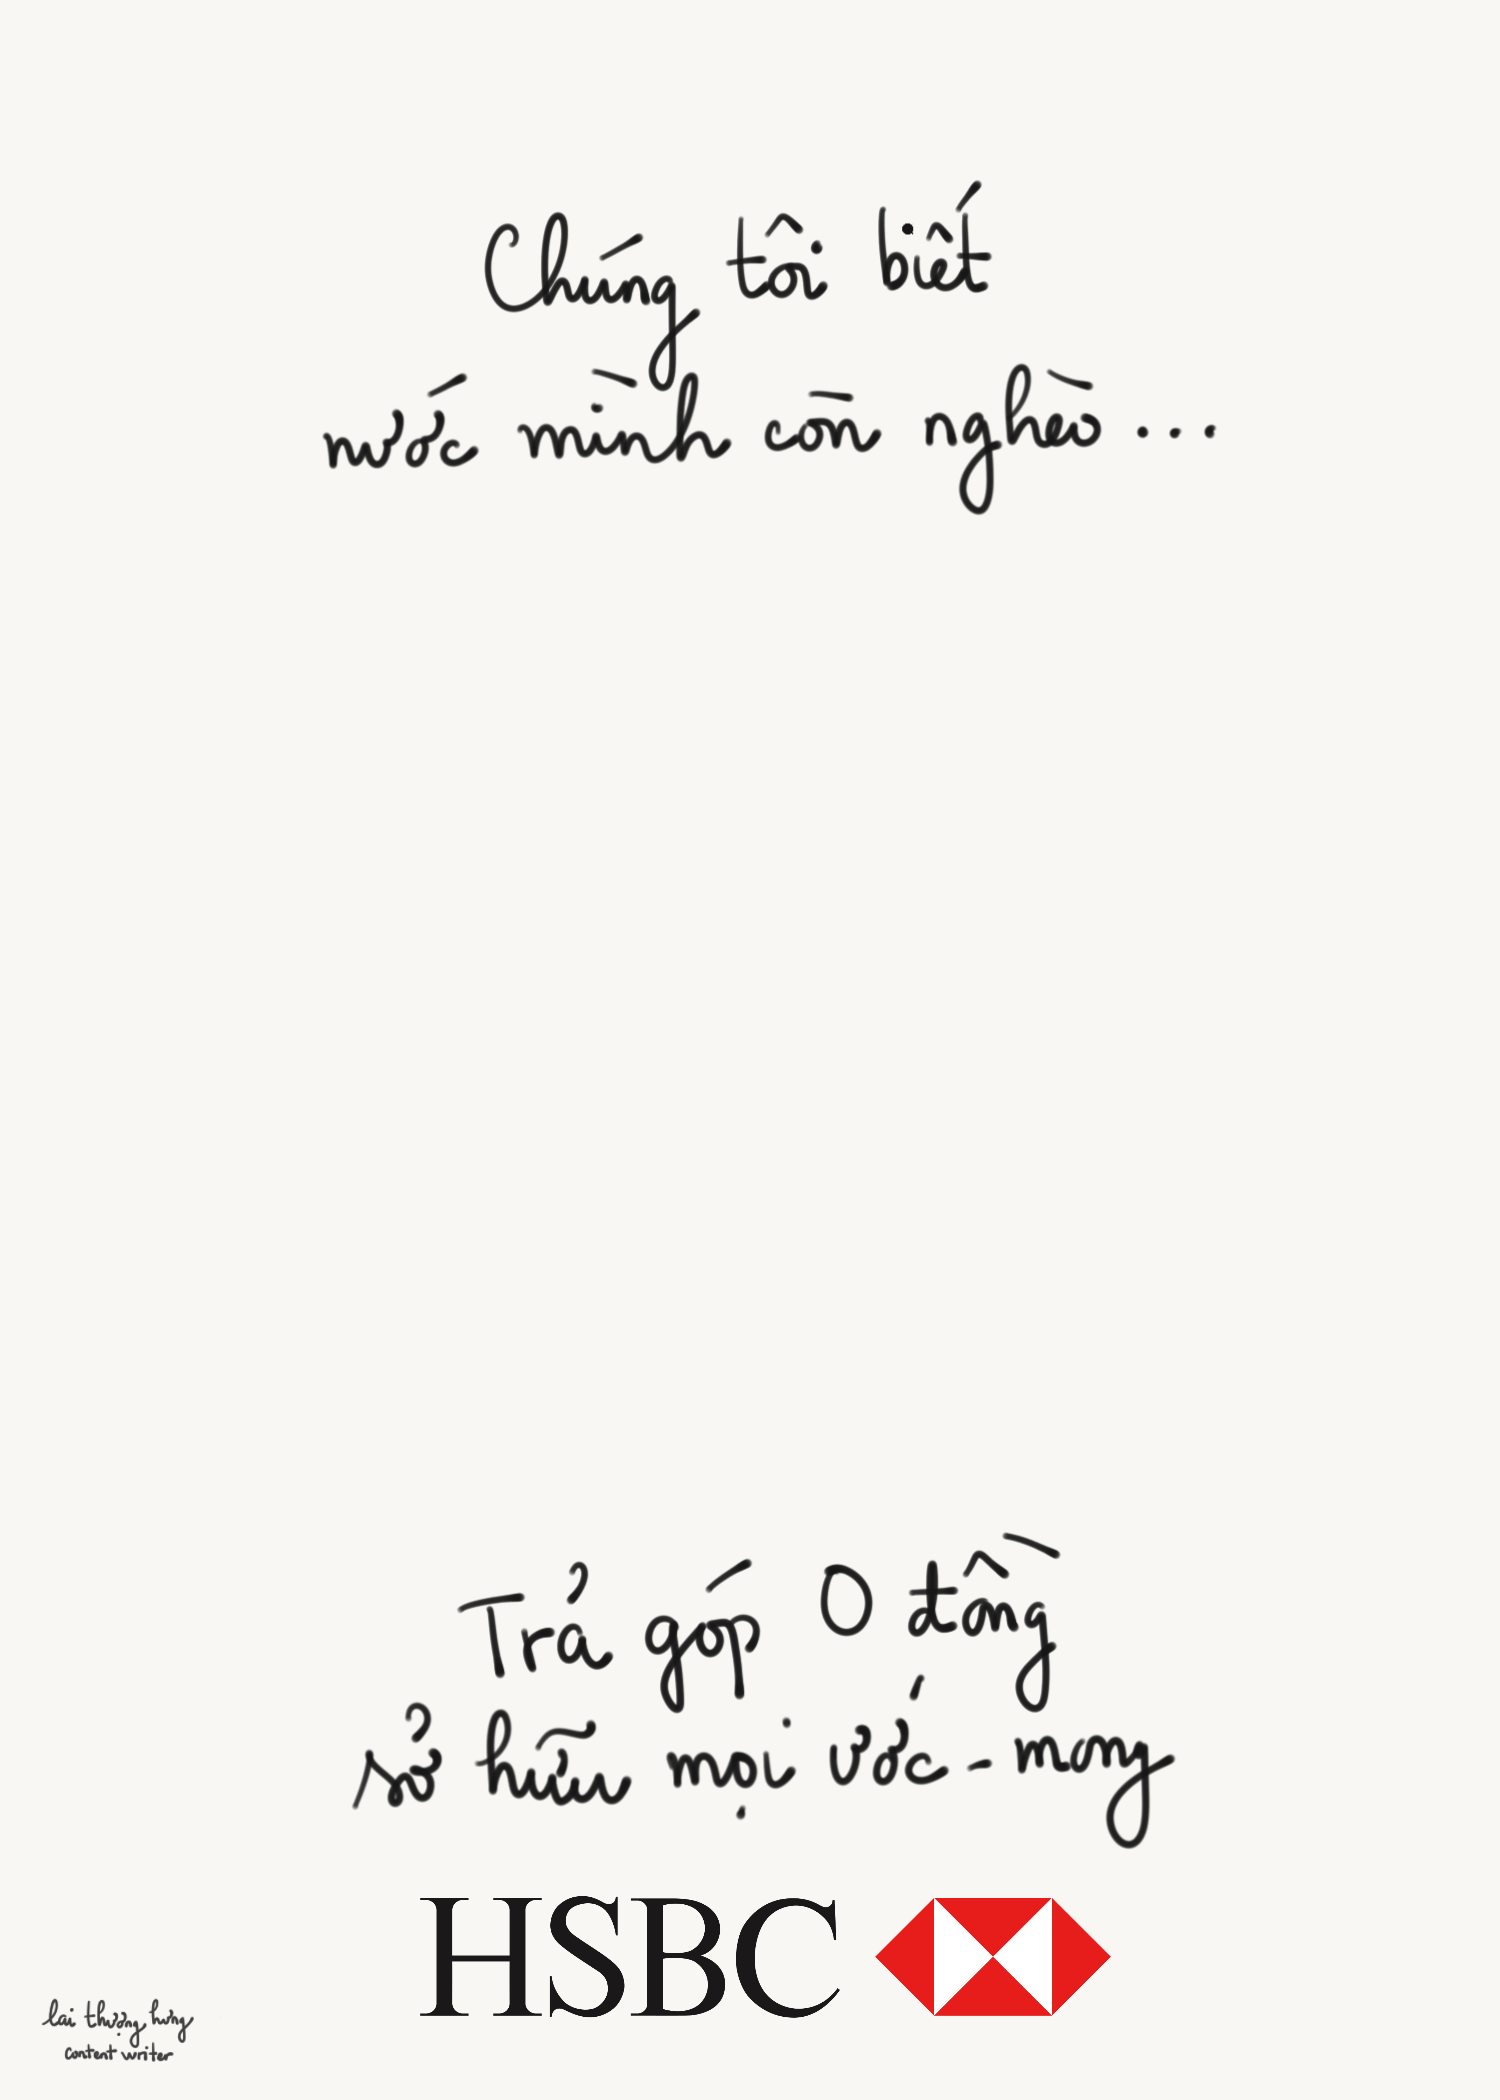 Chúng tôi biết
nước mình còn nghèo...
Trả góp 0 đồng
sở hữu mọi ước-mong
HSBC
lai thượng hưng
content writer